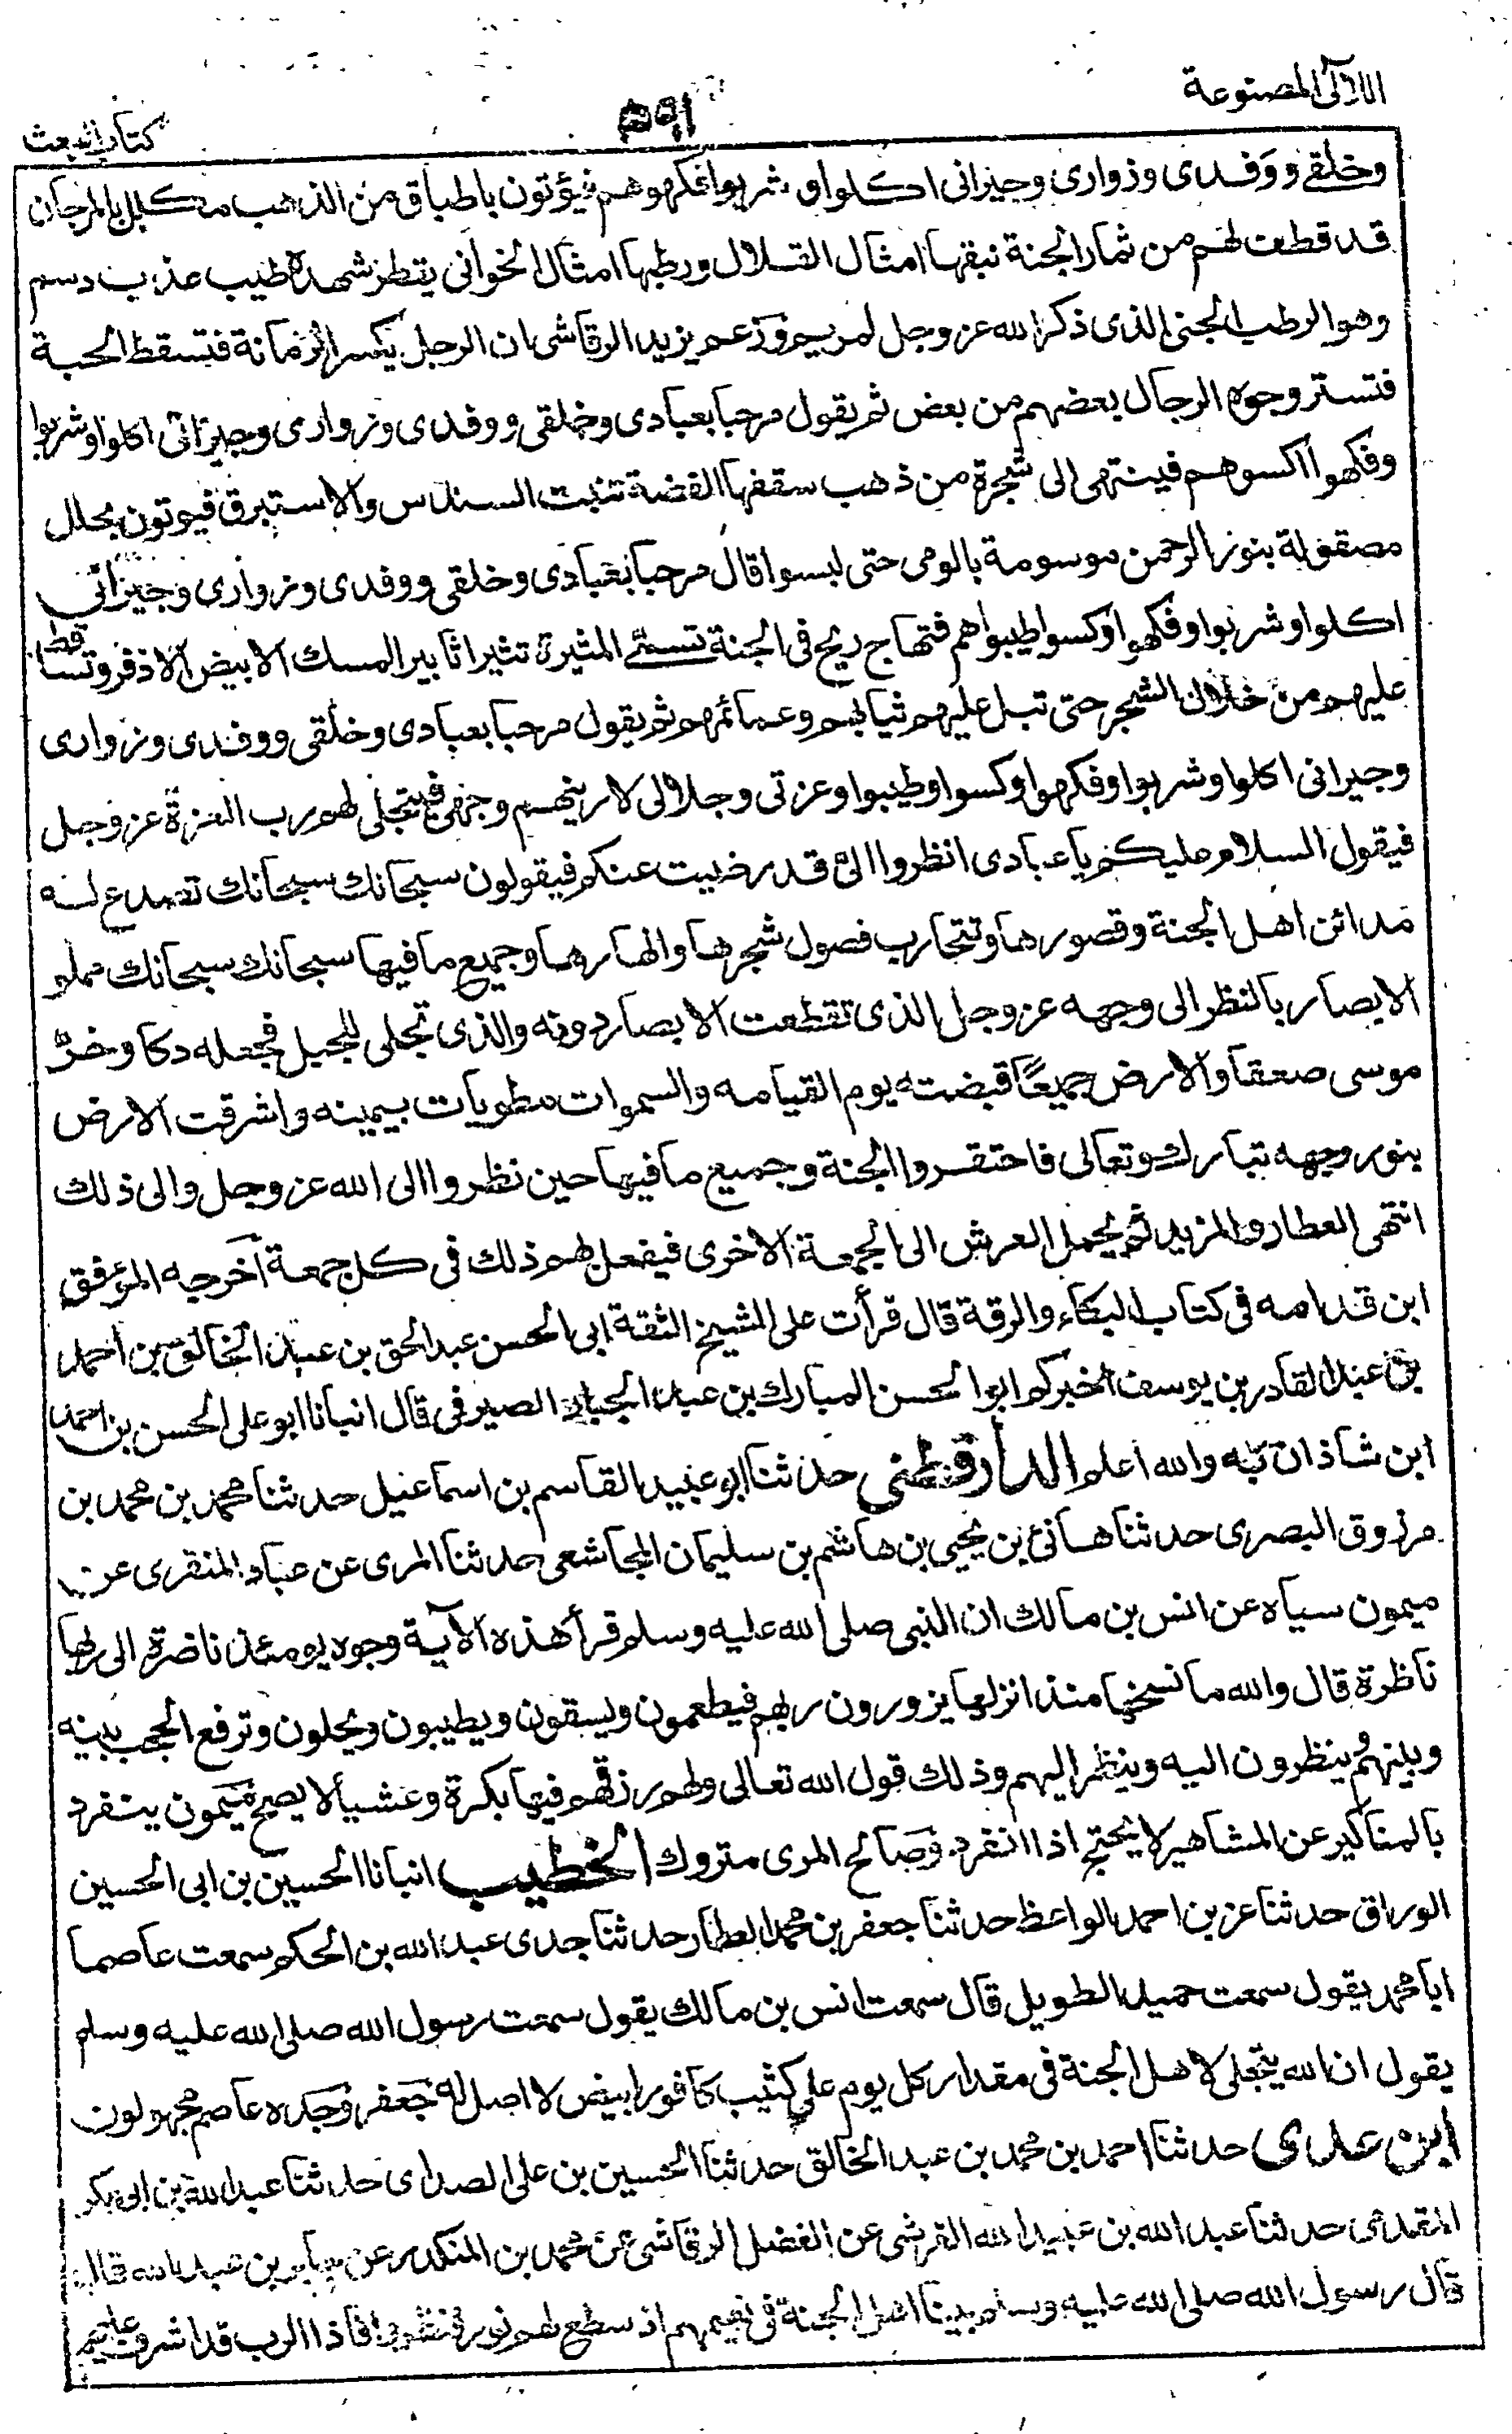 اللآلى المصنوعة
كتاب البعث
وخلقى ووفدى وزوارى وجيرانى اكلوا وشربوا فكهوهم فيؤتون باطباق من الذهب مكلل بالمرجان
قد قطف لهم من ثمار الجنة نبقها امثال القلال ورطبها امثال الخوانى يقطر شهده طيب عذب دسم
وهو الرطب الجنى الذى ذكر الله عز وجل لمريم وزعم يزيد الرقاشى ان الرجل يكسر الرمانة فتسقط الحبة
فتستر وجوه الرجال بعضهم من بعض ثم يقول مرحبا بعبادى وخلقى ووفدى وزوارى وجيرانى اكلوا وشربوا
وفكهوا اكسوهم فينتهى الى شجرة من ذهب سقفها الفضة تنبت السندس والاستبرق فيوتون بحلل
مصقولة بنور الرحمن موسومة بالومى حتى لبسوا قال مرحبا بعبادى وخلقى ووفدى وزوارى وجيرانى
اكلوا وشربوا وفكهوا وكسوا طيبوهم فتهاج ريح فى الجنة تسمى المثيرة تثير اثابير المسك الابيض الاذفر وتساقط
عليهم من خلال الشجر حتى تبل عليهم ثيابهم وعمائمهم ثم يقول مرحبا بعبادى وخلقى ووفدى وزوارى
وجيرانى اكلوا وشربوا وفكهوا وكسوا وطيبوا وعزتى وجلالى لارينهم وجهى فيتجلى لهم رب العزة عز وجل
فيقول السلام عليكم يا عبادى انظروا الىّ قد رضيت عنكم فيقولون سبحانك سبحانك تصدع له
مدائن اهل الجنة وقصورها وتتجارب فصول شجرها وانهارها وجميع ما فيها سبحانك سبحانك تملو
الابصار بالنظر الى وجهه عز وجل الذى تقطعت الابصار دونه والذى تجلى للجبل فجعله دكا وخرّ
موسى صعقا والارض جميعًا قبضته يوم القيامه والسموات مطويات بيمينه واشرقت الارض
بنور وجهه تبارك وتعالى فاحتقروا الجنة وجميع ما فيها حين نظروا الى الله عز وجل والى ذلك
انتهى العطار والمزيد ثم يحمل العرش الى الجمعة الاخرى فيفعل لهم ذلك فى كل جمعة آخرجه الموفق
ابن قدامه فى كتاب البكاء والرقة قال قرأت على الشيخ الثقة ابى الحسن عبد الحق بن عبد الخالق بن احمد
بن عبد القادر بن يوسف اخبركم ابو الحسن المبارك بن عبد الجبار الصيرفى قال انبانا ابو على الحسن بن احمد
ابن شاذان به والله اعلم الدارقطنى حدثنا ابو عبيد القاسم بن اسماعيل حدثنا محمد بن محمد بن
مرزوق البصرى حدثنا هانئ بن يحيى بن هاشم بن سليمان المجاشعى حدثنا المرى عن عباد المنقرى عن
ميمون سياه عن انس بن مالك ان النبى صلى الله عليه وسلم قرأ هذه الآية وجوه يومئذ ناضرة الى ربها
ناظرة قال والله ما نسخها منذ انزلها يزورون ربهم فيطعمون ويسقون ويطيبون ويحلون وترفع الحجب بينه
وبينهم وينظرون اليه وينظر اليهم وذلك قول الله تعالى ولهم رزقهم فيها بكرة وعشيا لا يصح ميمون ينفرد
بالمناكير عن المشاهير لا يحتج اذا انفرد وصالح المرى متروك الخطيب انبانا الحسين بن ابى الحسين
الوراق حدثنا عز بن احمد الواعظ حدثنا جعفر بن محمد العطار حدثنا جدى عبد الله بن الحكم سمعت عاصما
ابا محمد يقول سمعت حميد الطويل قال سمعت انس بن مالك يقول سمعت رسول الله صلى الله عليه وسلم
يقول ان الله يتجلى لاهل الجنة فى مقدار كل يوم على كثيب كافور ابيض لا اصل له جعفر وجده عاصم مجهولون
ابن عدى حدثنا احمد بن محمد بن عبد الخالق حدثنا الحسين بن على الصداى حدثنا عبد الله بن ابى بكر
المقدمى حدثنا عبد الله بن عبيد الله القرشى عن الفضل الرقاشى عن محمد بن المنكدر عن جابر بن عبد الله قال
قال رسول الله صلى الله عليه وسلم بينا اهل الجنة فى نعيمهم اذ سطع لهم نور فنظروا فاذا الرب قد اشرف عليهم